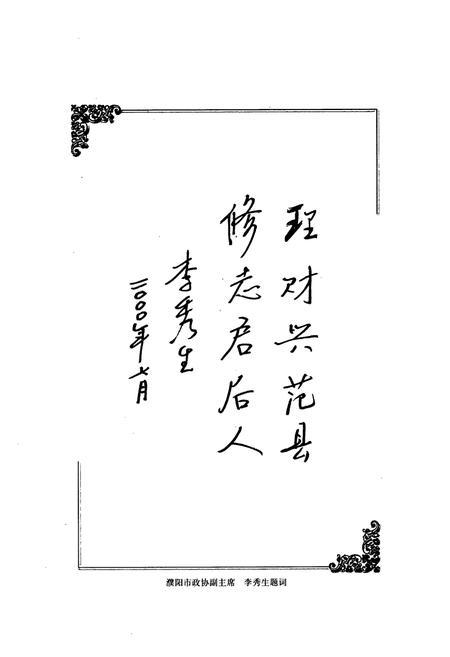 理财兴范县
修志启后人
李秀生
二〇〇〇年七月
濮阳市政协副主席 李秀生题词